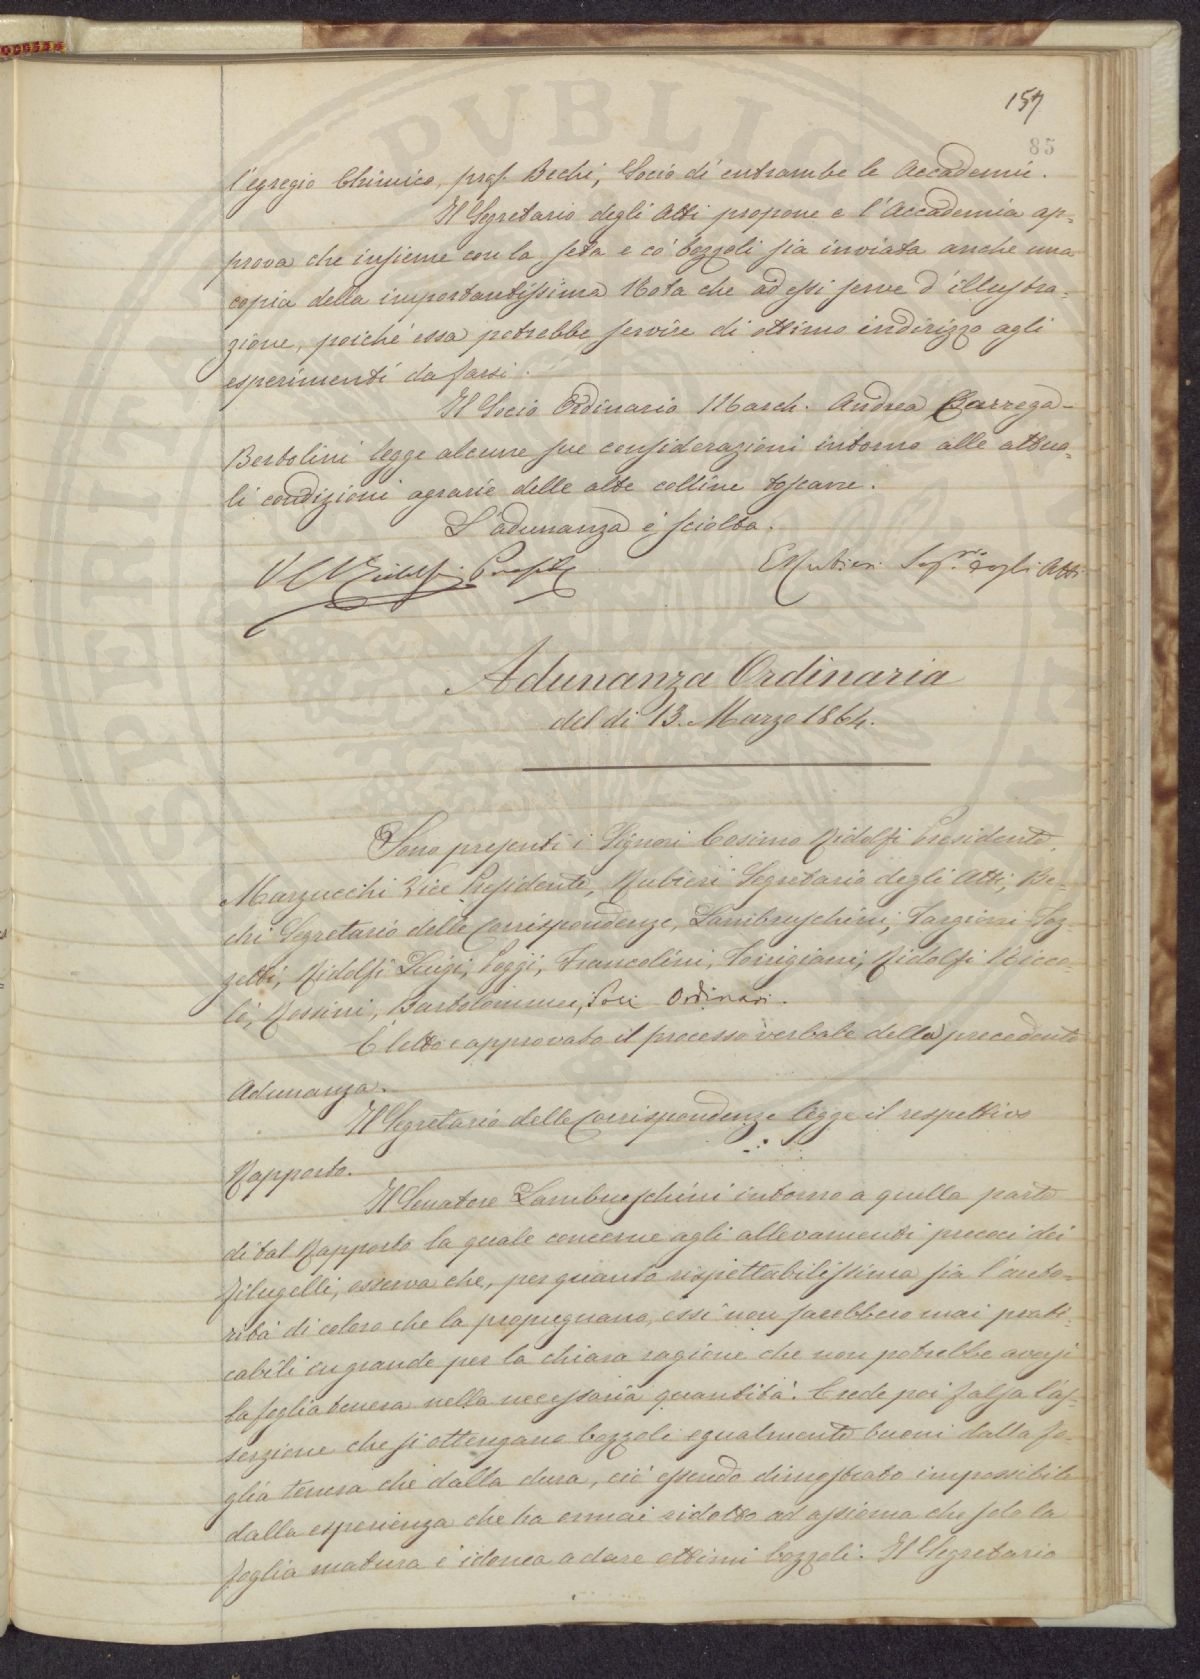 157
85
l'egregio Chimico, prof. Bechi, Socio di entrambe le Accademie.
Il Segretario degli Atti propone e l'Accademia ap-
prova che insieme con la seta e co' bozzoli sia inviata anche una
copia della importantissima Nota che ad essi serve d'illustra-
zione, poiché essa potrebbe servire di ottimo indirizzo agli
esperimenti da farsi.
Il Socio Ordinario March. Andrea Carrega-
Bertolini legge alcune sue considerazioni intorno alle attua-
li condizioni agrarie delle alte colline toscane.
L'adunanza è sciolta.
Ridolfi Presidte
E Rubieri Segrio degli Atti
Adunanza Ordinaria
del di 13. Marzo 1864.
Sono presenti i Signori Cosimo Ridolfi Presidente,
Marzucchi Vice Presidente, Rubieri Segretario degli Atti, Be-
chi Segretario delle Corrispondenze, Lambruschini, Targioni Toz-
zetti, Ridolfi Luigi, Poggi, Francolini, Torrigiani, Ridolfi Nicco-
lò, Rossini, Bartolommei, Soci Ordinari.
È letto e approvato il processo verbale della precedente
Adunanza.
Il Segretario delle Corrispondenze legge il respettivo
Rapporto.
Il Senatore Lambruschini intorno a quella parte
di tal Rapporto la quale concerne agli allevamenti precoci dei
filugelli, osserva che, per quanto rispettabilissima sia l'auto-
rità di coloro che la propugnano, essi non sarebbero mai prati-
cabili in grande per la chiara ragione che non potrebbe aversi
la foglia tenera nella necessaria quantità. Crede poi falsa l'as-
serzione che si ottengano bozzoli egualmente buoni dalla fo-
glia tenera che dalla dura, ciò essendo dimostrato impossibile
dalla esperienza che ha ormai ridotto ad assioma che solo la
foglia matura è idonea a dare ottimi bozzoli. Il Segretario